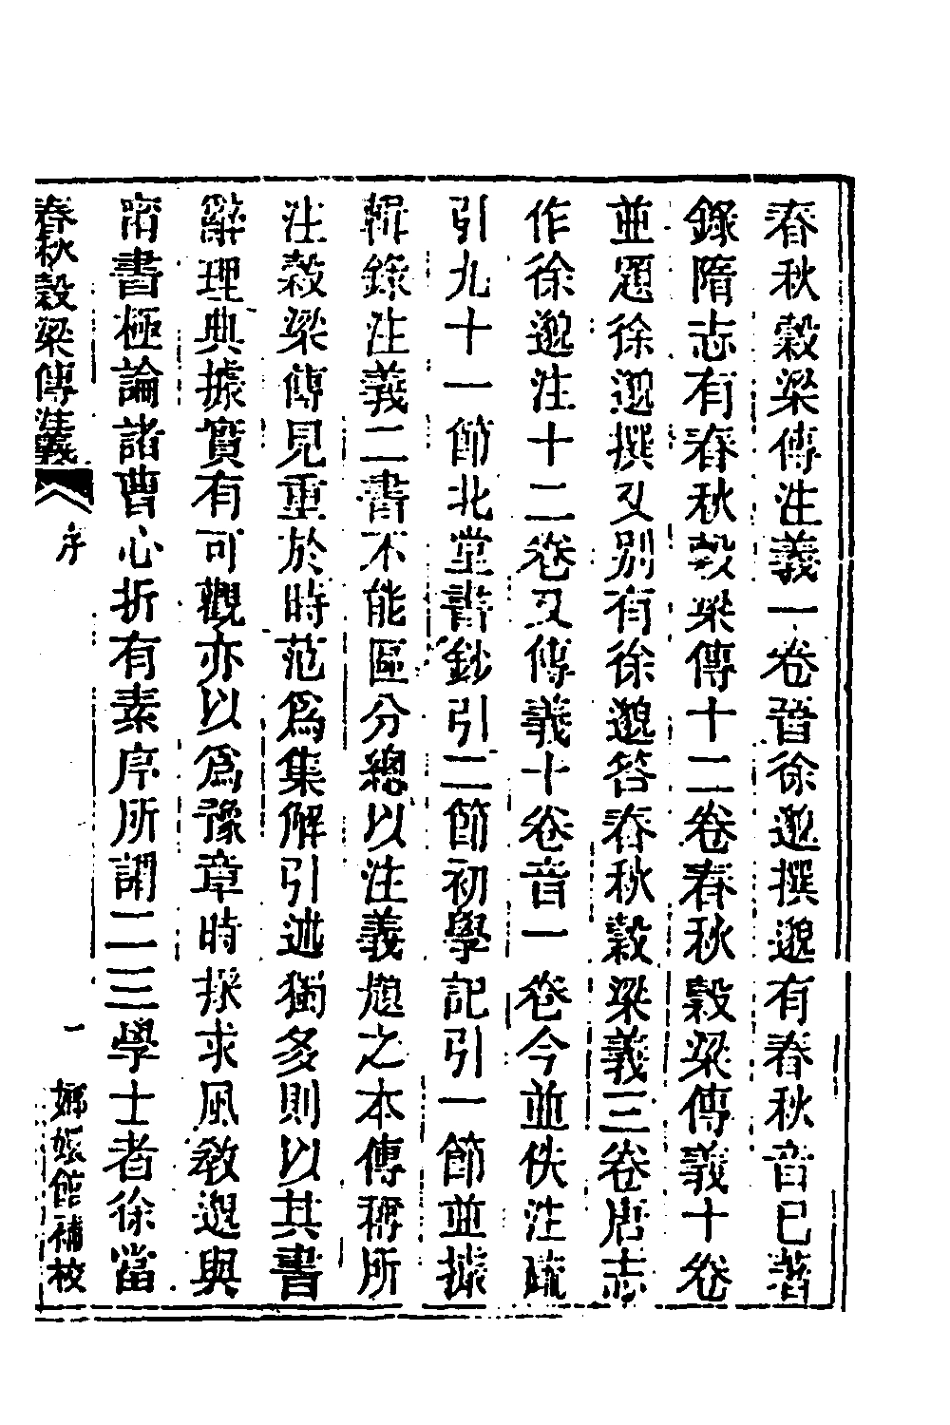 春秋穀梁傳注義一卷晉徐邈撰邈有春秋音已著
錄隋志有春秋穀梁傳十二卷春秋穀梁傳義十卷
並題徐邈撰又別有徐邈答春秋穀梁義三卷唐志
作徐邈注十二卷又傳義十卷音一卷今並佚注疏
引九十一節北堂書鈔引二節初學記引一節並據
輯錄注義二書不能區分總以注義題之本傳稱所
注穀梁傳見重於時范爲集解引述獨多則以其書
辭理典據實有可觀亦以爲豫章時採求風敎邈與
甯書極論諸曹心折有素序所謂二三學士者徐當
春秋穀梁傳注義 序 一 嫏嬛館補校